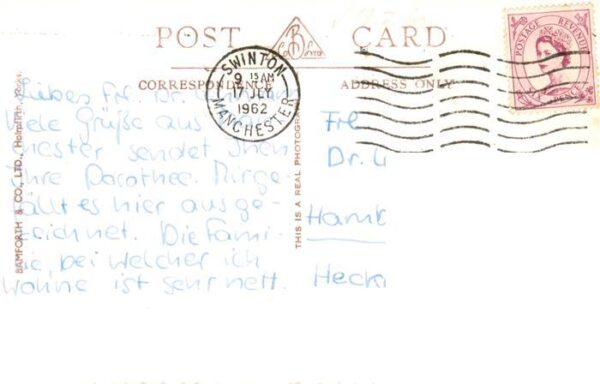 POST CARD
CORRESPONDENCE ADDRESS ONLY
SWINTON
9 15 AM
17 JLY
1962
MANCHESTER
POSTAGE REVENUE
BAMFORTH & CO., LTD., Holmfirth, Yorks.
THIS IS A REAL PHOTOGR
Liebes Frl. Dr.
Viele Grüße aus
chester sendet Ihnen
Ihre Dorothee. Mir ge-
fällt es hier ausge-
zeichnet. Die Fami-
lie, bei welcher ich
wohne ist sehr nett.
Frl
Dr.
Hamb
Heck